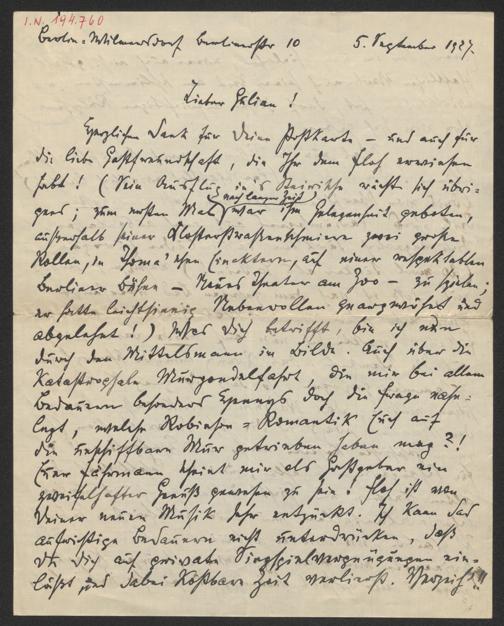 I.N. 194.760
Berlin-Wilmersdorf Berlinerstr 10 5. September 1927.
Lieber Gilian!
Herzlichen Dank für Deine Postkarte – und auch für
die liebe Gastfreundschaft, die Ihr dem Floh erwiesen
habt! (Sein Ausflug in's Steirische rächte sich übri-
gens; zum ersten Mal nach langer Zeit war ihm Gelegenheit geboten,
außerhalb seiner zwei große
Rollen, in Thoma'schen Einaktern, auf einer respektablen
Berliner Bühne – Neues Theater am Zoo – zu spielen;
er hatte leichtsinnig Nebenrollen geargwöhnt und
abgelehnt!) Was Dich betrifft, bin ich nun
durch den Mittelsmann im Bilde. Auch über die
katastrophale Murgondelfahrt, die mir bei allem
Bedauern besonders doch die Frage nahe-
legt, welche Robinson-Romantik Euch auf
die unschiffbare Mur getrieben haben mag?!
Euer Fährmann scheint mir als Gastgeber ein
zweifelhafter Genuß gewesen zu sein! Floh ist von
Deiner neuen Musik sehr entzückt. Ich kann das
aufrichtige Bedauern nicht unterdrücken, daß
Du Dich auf private Singspielvergnügungen ein-
läßt und dabei kostbare Zeit verlierst. Verzeih'!!